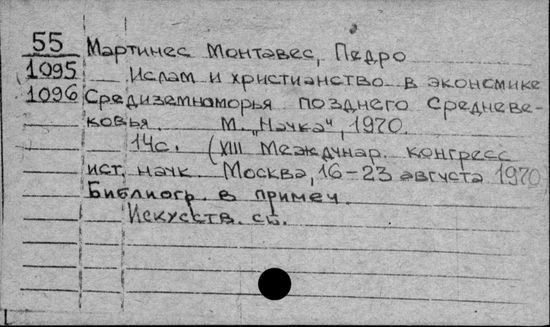 55 Мартинес Монтавес, Педро
1095 Ислам и христианство в экономике
1096 Средиземноморья позднего Средневе-
ковья. М. „Начка", 1970.
14с. (XIII Междунар. конгресс
ист. наук. Москва, 16-23 августа 1970
Библиогр. в примеч.
Искусств. сб.